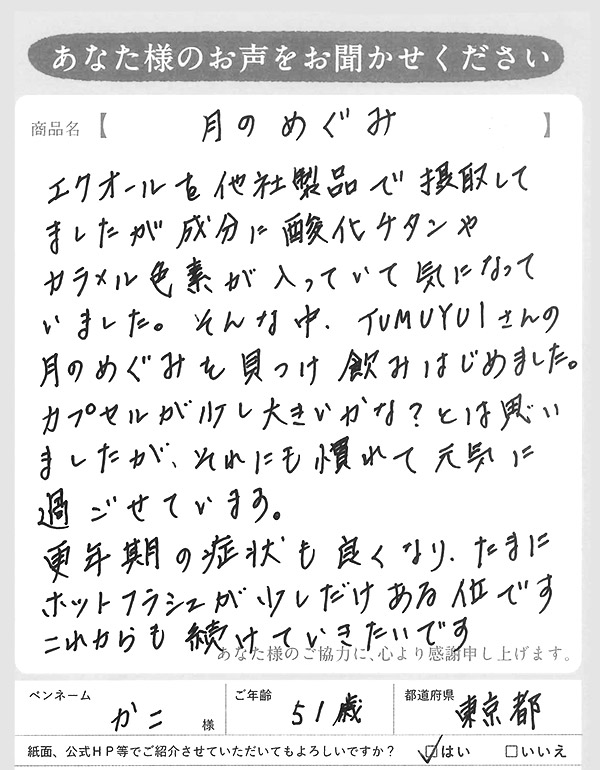 あなた様のお声をお聞かせください
商品名【 月のめぐみ 】
エクオールを他社製品で摂取して
ましたが成分に酸化チタンや
カラメル色素が入っていて気になって
いました。そんな中、TUMUYUIさんの
月のめぐみを見つけ飲みはじめました。
カプセルが少し大きいかな?とは思い
ましたが、それにも慣れて元気に
過ごせています。
更年期の症状も良くなり、たまに
ホットフラシュが少しだけある位です
これからも続けていきたいです
あなた様のご協力に、心より感謝申し上げます。
ペンネーム かこ 様 ご年齢 51歳 都道府県 東京都
紙面、公式HP等でご紹介させていただいてもよろしいですか? ☑はい □いいえ